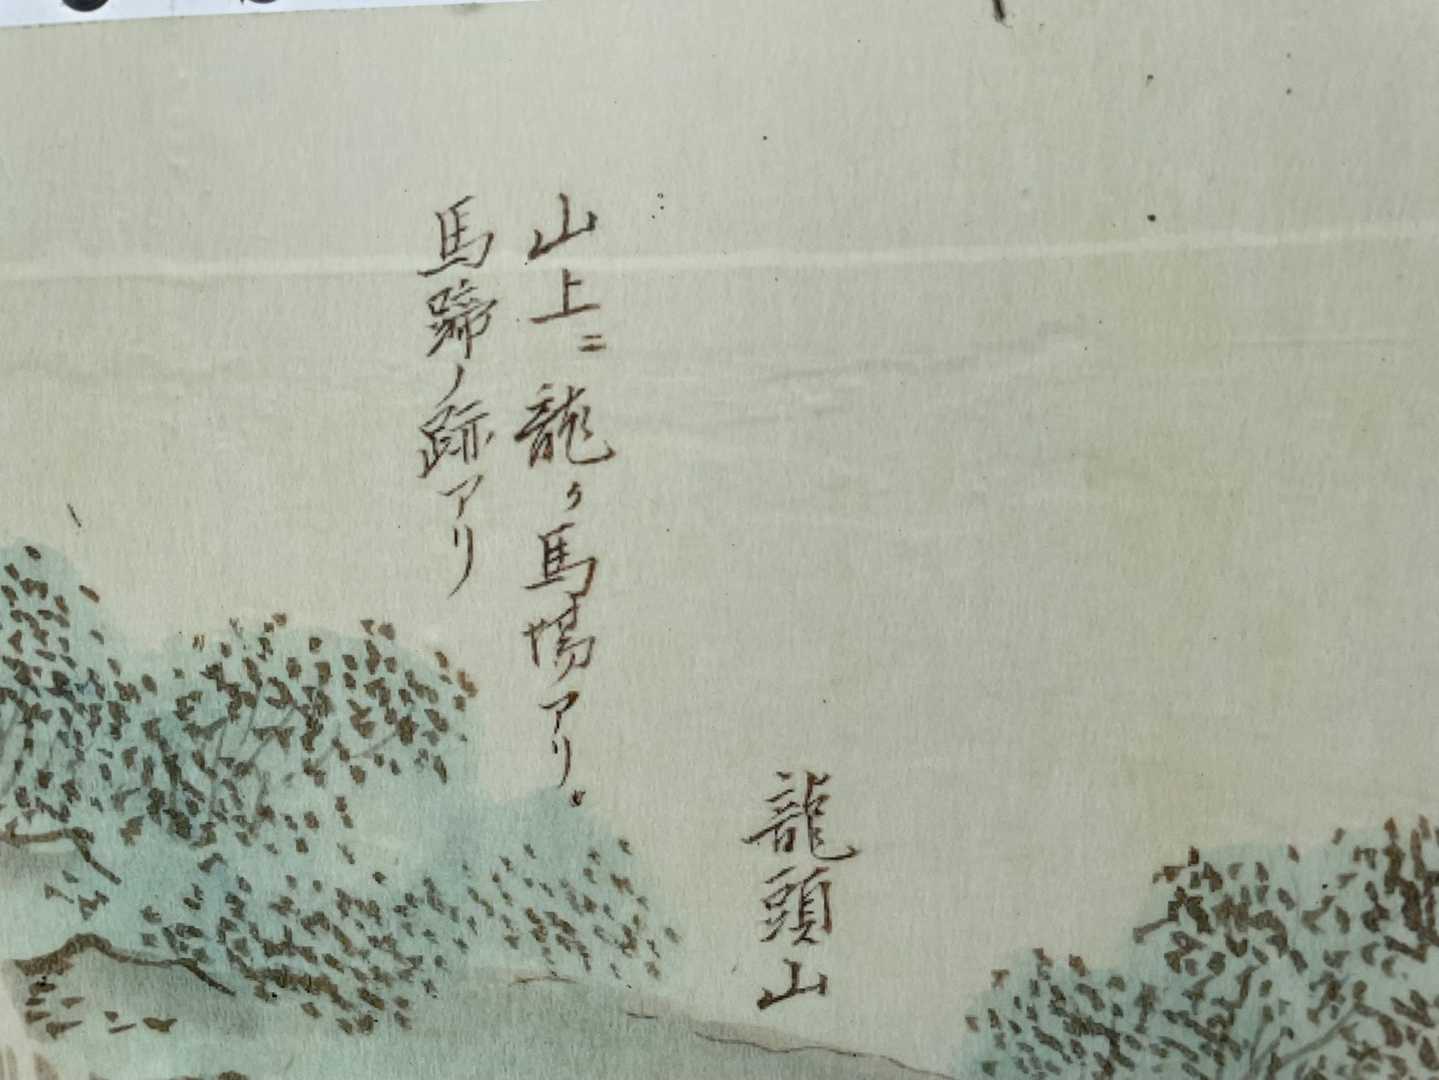 龍頭山
山上ニ龍ヶ馬場アリ。
馬蹄ノ跡アリ